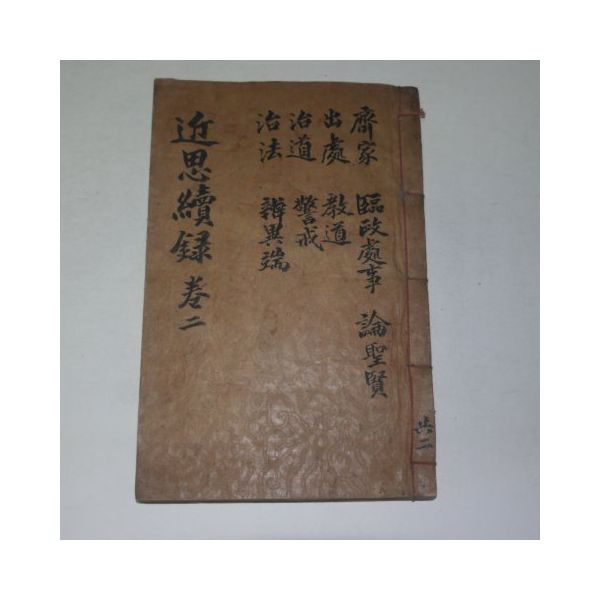 共二
齊家 臨政處事 論聖賢
出處 教道
治道 警戒
治法 辨異端
近思續録 卷二